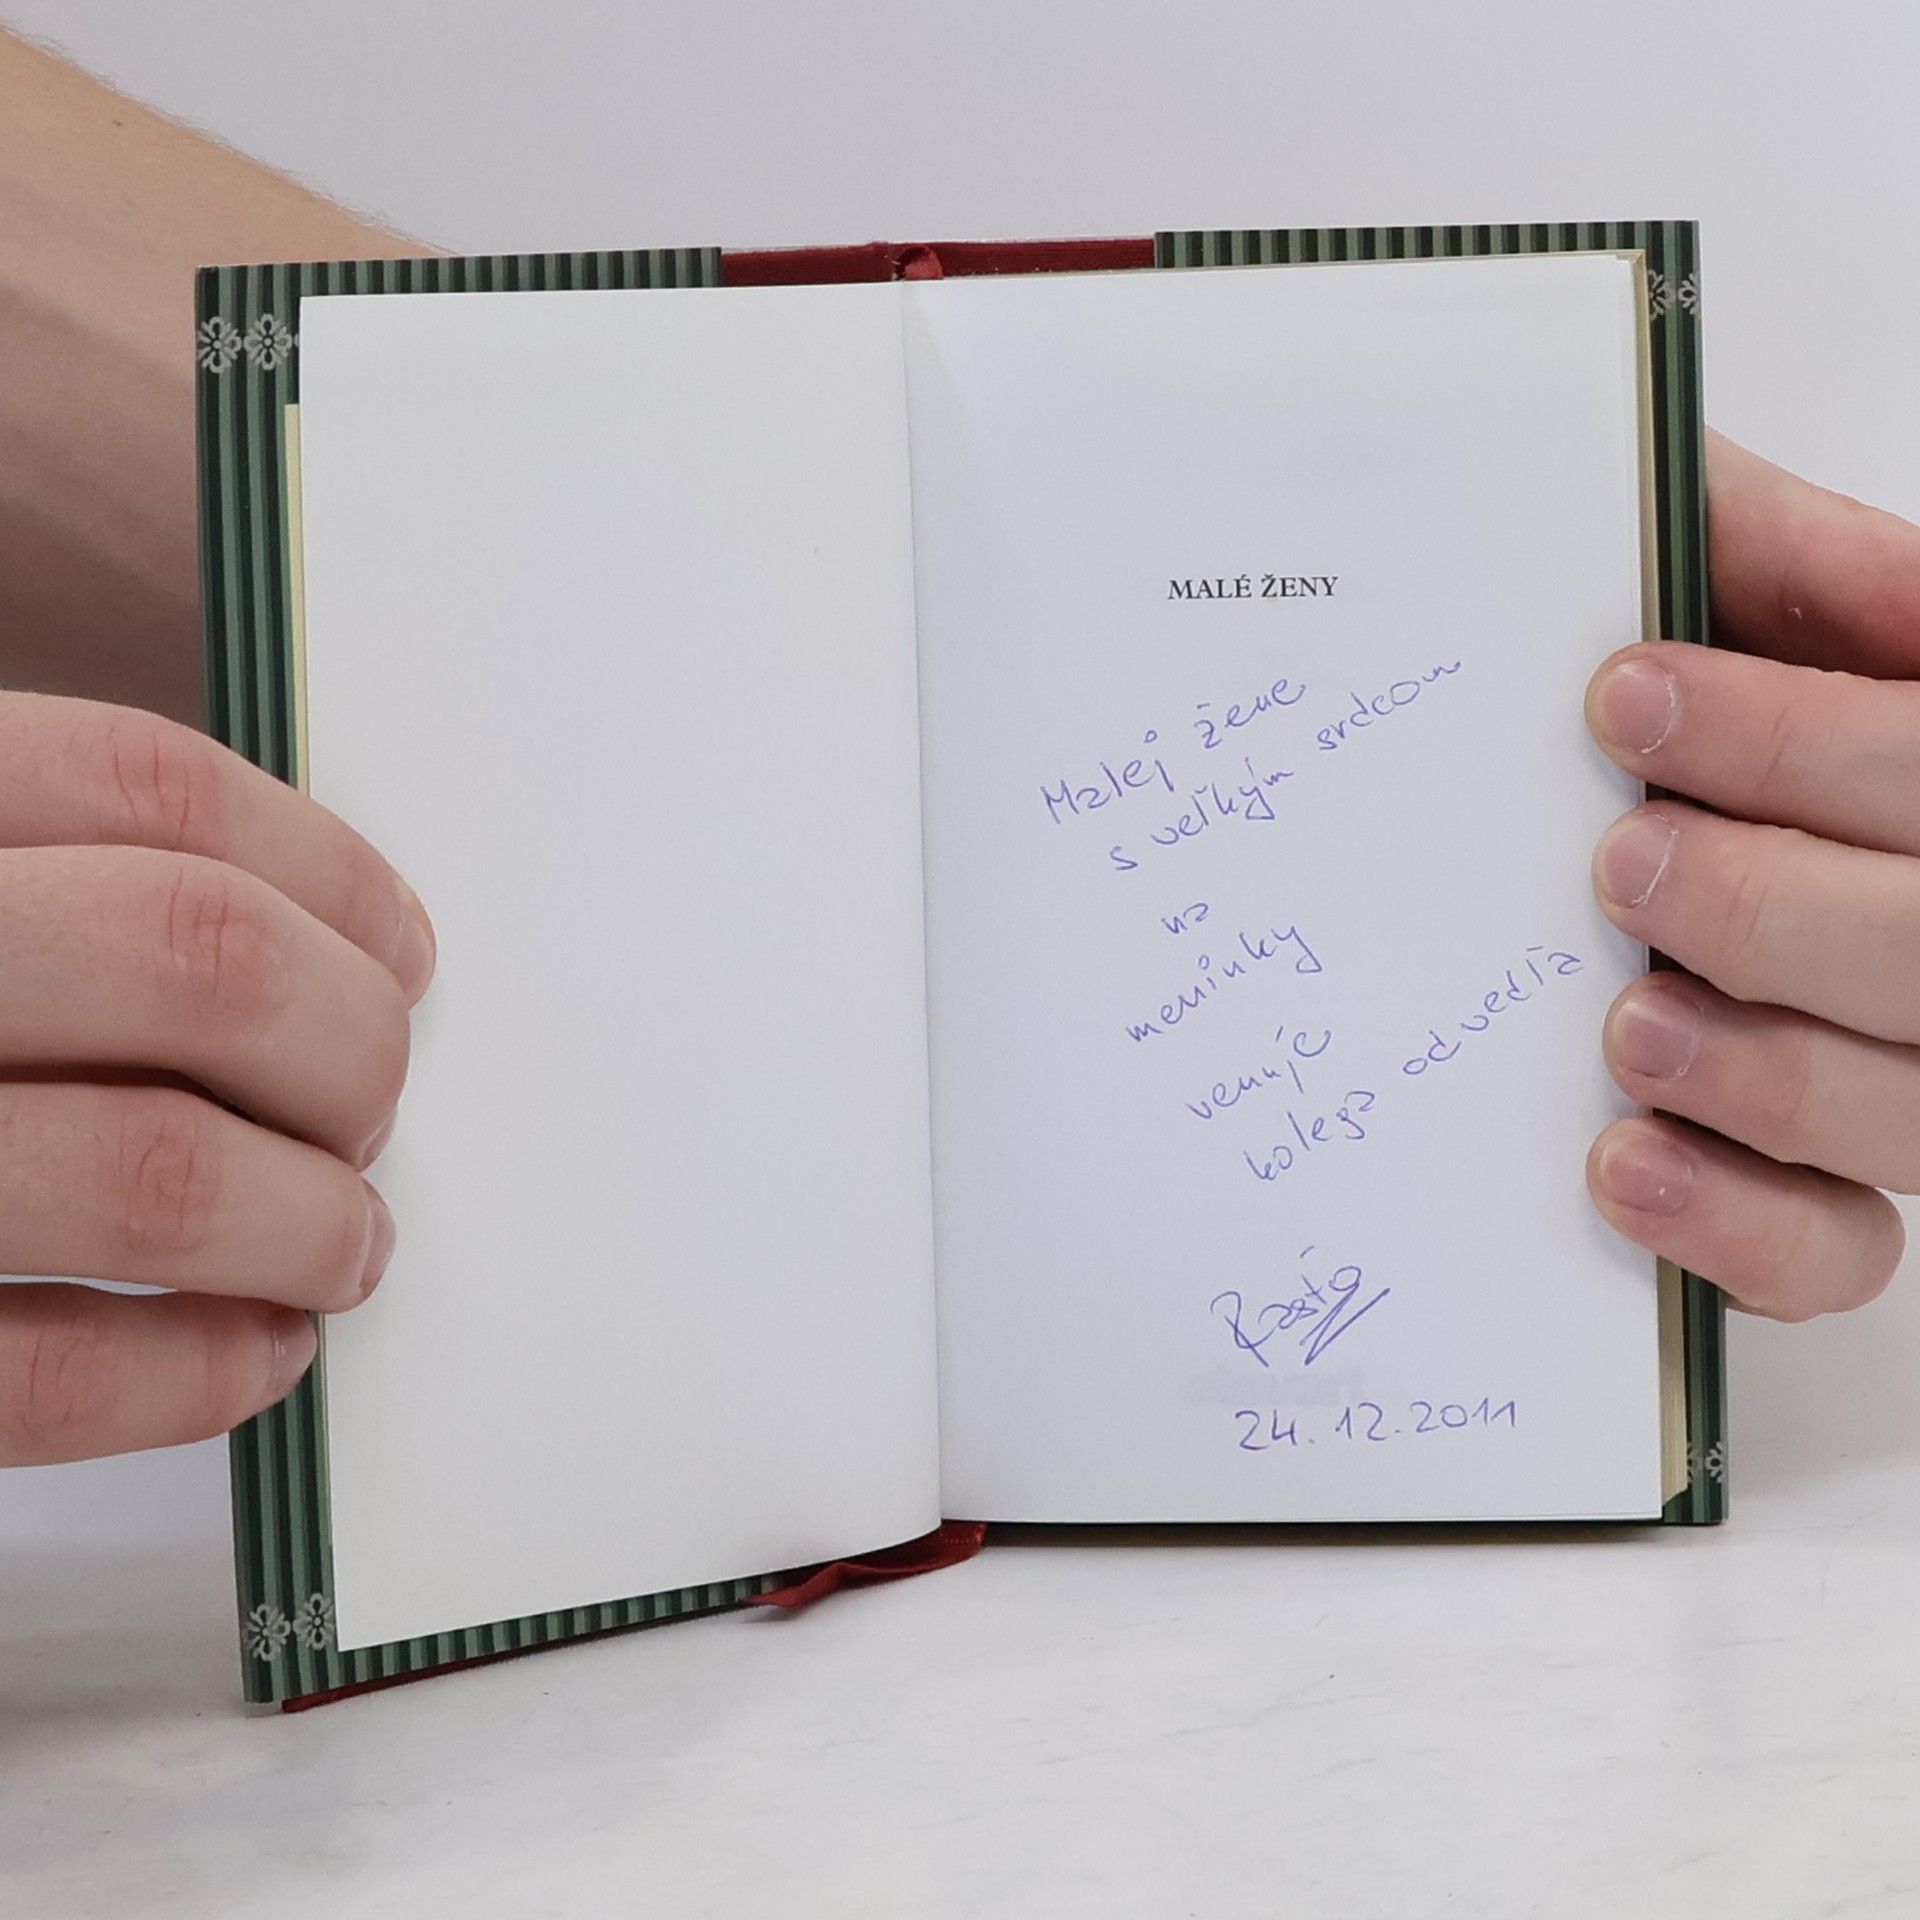 MALÉ ŽENY
Malej žene
s veľkým srdcom
na
meninky
venuje
kolega odvedľa
Rasťo
24.12.2011